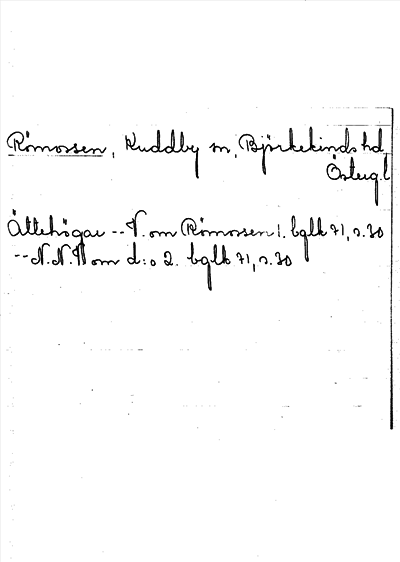 Römossen, Kuddby sn, Björkekinds hd,
Östergl
Ättehögar -- V. om Römossen 1. bglb 71, s. 30
-- N.N.V om d:o 2. bglb 71, s. 30